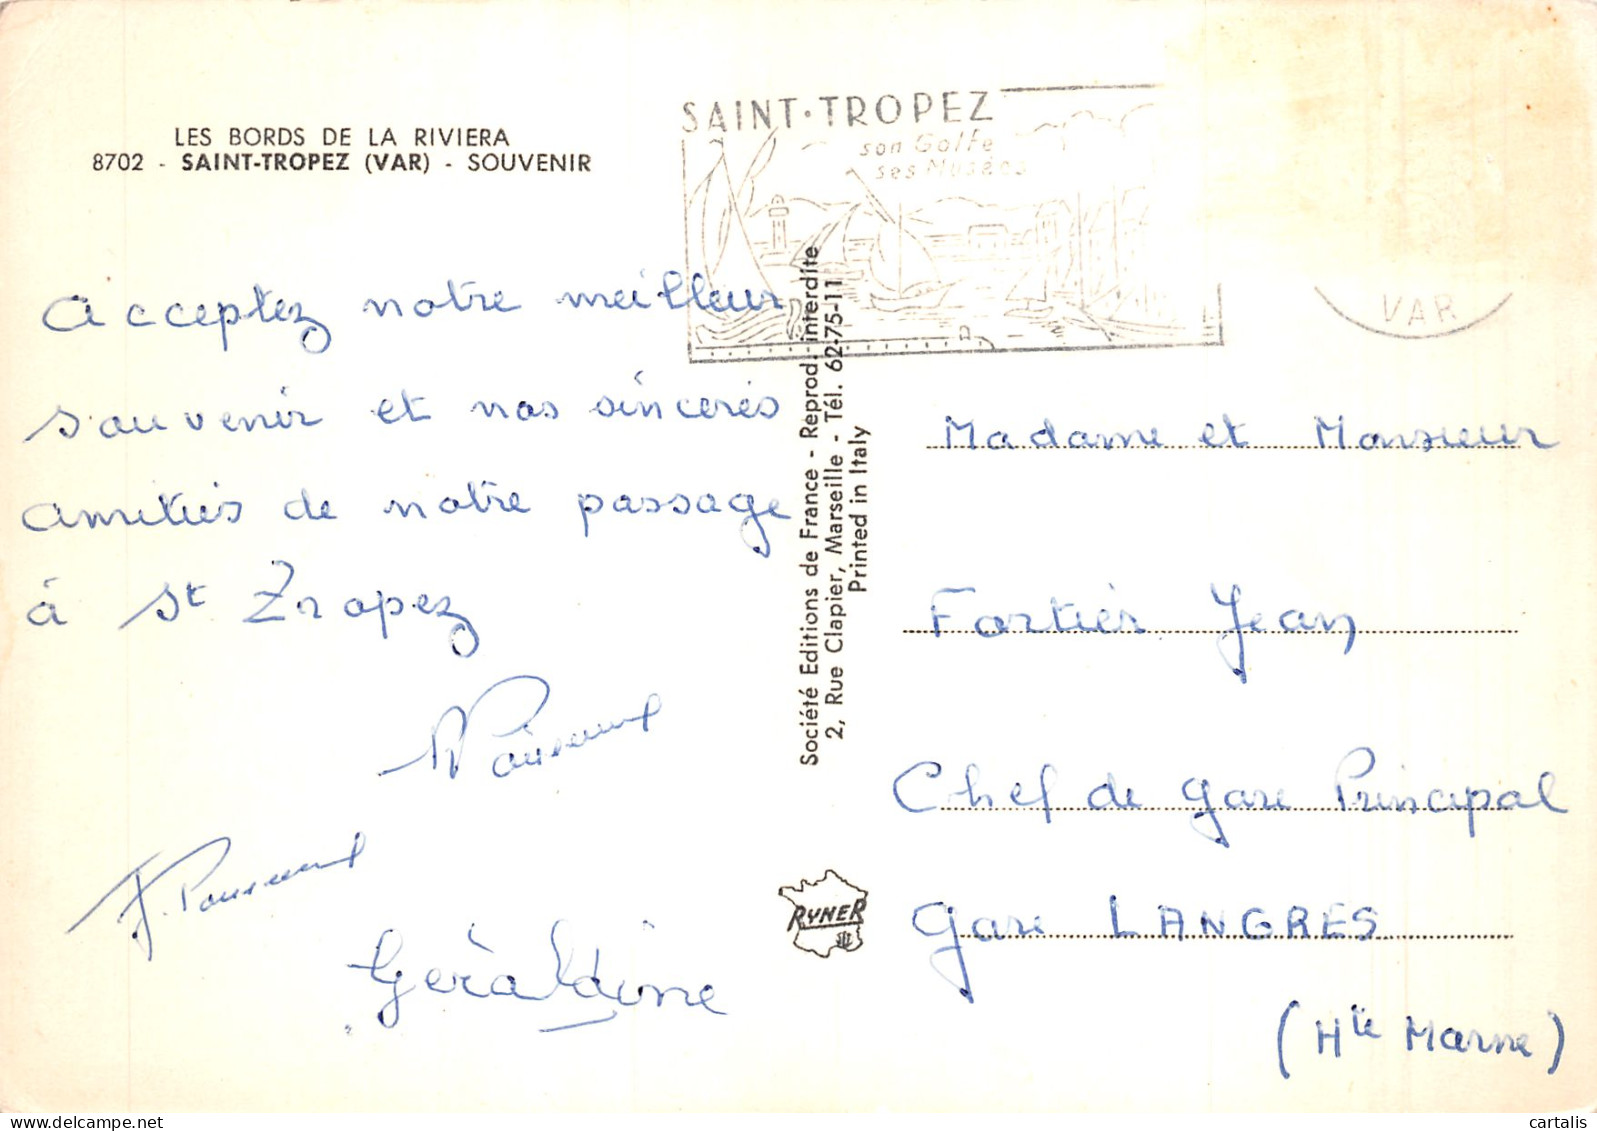 LES BORDS DE LA RIVIERA
8702 - SAINT-TROPEZ (VAR) - SOUVENIR
SAINT·TROPEZ
son Golfe
ses Musées
VAR
Acceptez notre meilleur
souvenir et nos sincères
amitiés de notre passage
à St Tropez
Géraldine
Société Editions de France - Reprod. interdite
2, Rue Clapier, Marseille - Tél. 62-75-11
Printed in Italy
RYNER
Madame et Monsieur
Fortier Jean
Chef de gare Principal
Gare LANGRES
(Hte Marne)
cartalis